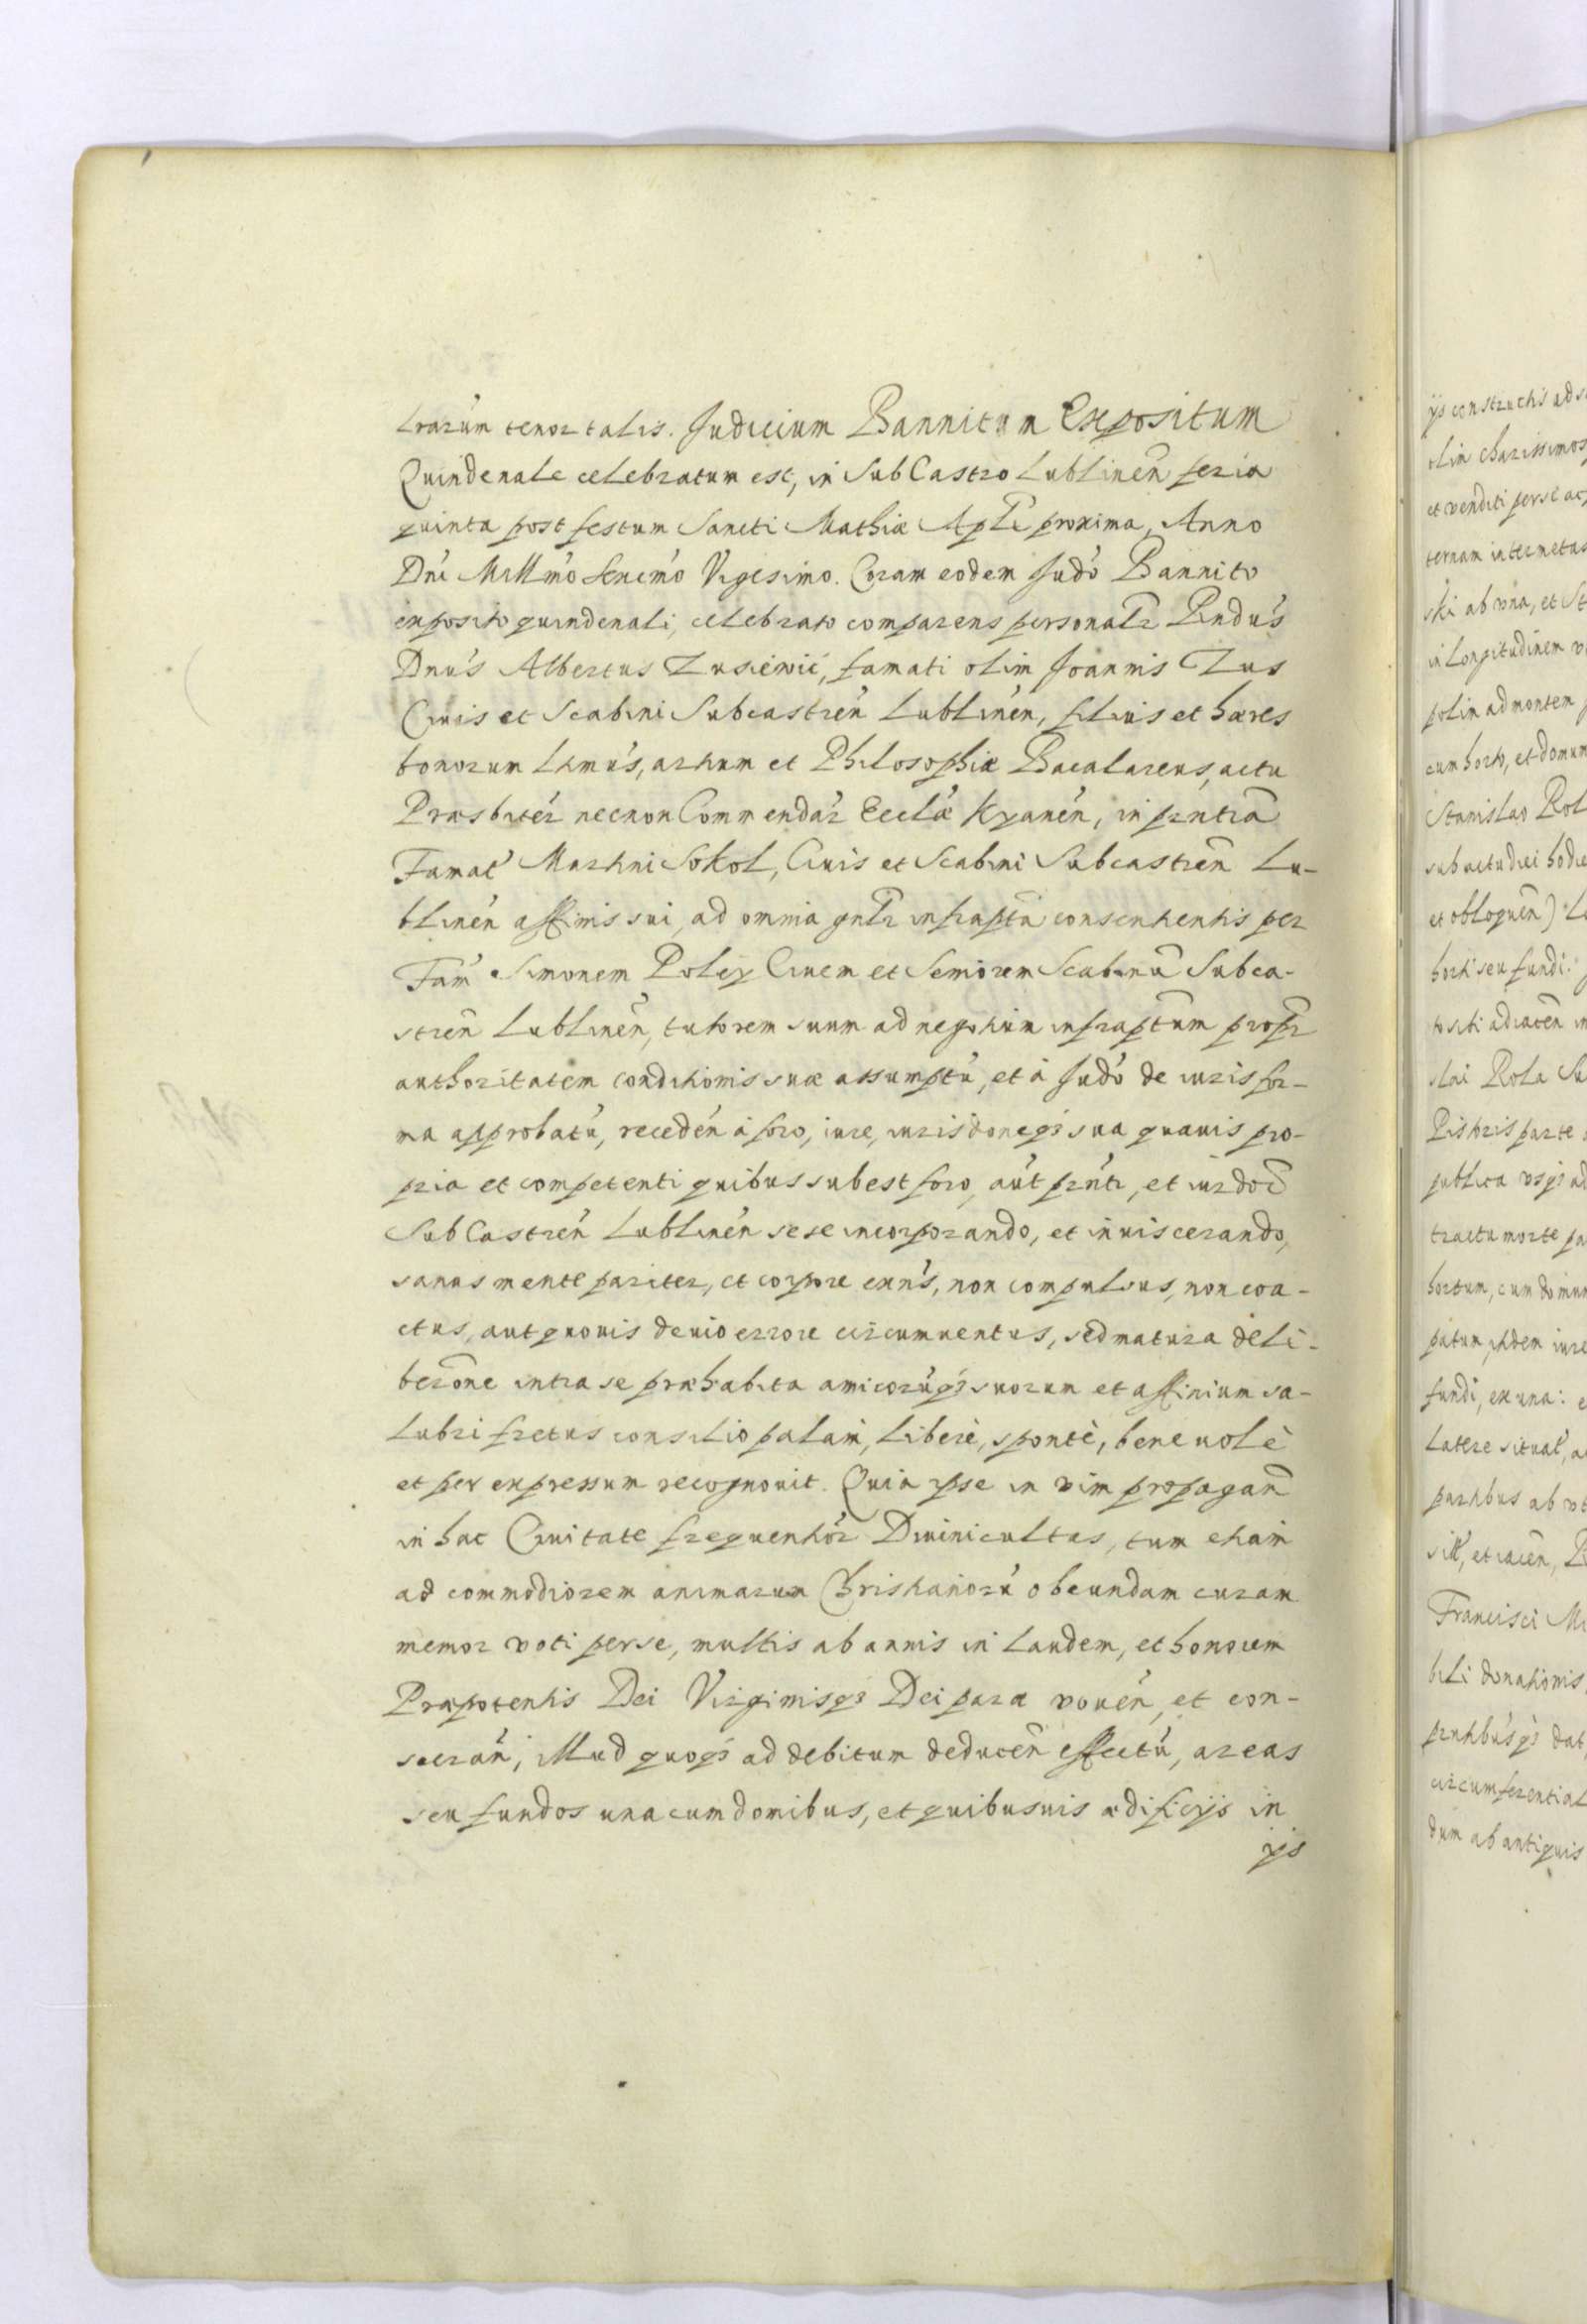 Lrarum tenor talis. Judicium Bannitum Expositum
Quindenale celebratum est, in SubCastro Lublinen̄ feria
quinta post festum Sancti Mathiæ Apłi proxima, Anno
Dńi Millm̕o Sexcm̕o Vigesimo. Coram eodem Jud̕o Bannito
exposito quindenali, celebrato comparens personalr̄ Rndu̕s
Dnu̕s Albertus Zusiewić, famati olim Joannis Zus
Ciuis et Scabini Subcastren̕ Lublinen̕, filius et hæres
bonorum Ltimu̕s, artium et Philosophiæ Bacalareus, actu
Præsbiter̕ necnon Commendar̕ Eccl̕æ Kyanen̕, in prntia̅
Famat̕ Martini Sokol, Ciuis et Scabini Subcastren̄ Lu-
blinen̕ affinis sui, ad omnia gnlr̄ infrapta̅ consentientis per
Fam̕ Simonem Poley Ciuem et Seniorem Scabinu̅ Subca-
stren̄ Lublinen̄, tutorem suum ad negotium infraptu̅m propr̄
authoritatem conditionis suæ assumptu̕, et à Jud̕o de iuris for-
ma approbatu̕, receden̕ à foro, iure, iurisdoneq̕₃ sua quauis pro-
pria et competenti quibus subest foro, au̕t prn̕ti, et iurdoc̅
SubCastren̕ Lublinen̕ sese incorporando, et inuiscerando,
sanus mente pariter, et corpore exn̕s, non compulsus, non coa-
ctus, aut quouis deuio errore circumuentus, sed matura deli-
bero̅ne intra se præhabita amicoru̕q̕₃ suorum et affinium sa-
lubri fretus consilio palam̀, Liberè, spontè, beneuolè
et per expressum recognouit. Quia ipse in vim propagan̄
in hac Ciuitate frequentior̕ Diuini cultus, tum etiam̀
ad commodiorem animarum Christianoru̕ obeundam curam
memor voti per se, multis ab annis in Laudem, et honorem
Præpotentis Dei Virginisq₃ Deiparæ vouen̕, et con-
secran̕, illud quoq̕₃ ad debitum deducen̄ effectu̕, areas
seu fundos una cum domibus, et quibusuis ædificijs in
ijs
ijs constructis ad s
olim charissimos
et venditi per se ac
ternam inter metas
ski ab vna, et St
in Longitudinem v
polim ad montem
cum horto, et domum
Stanislao Rol
sub actu diei hodie
et obloquen̄) L
horti seu fundi.
to sibi adiacen̄ in
slai Rola Su
Pistoris parte
publica vsq₃ ad
tractu morte pa
hortum, cum domum
patum, itidem iure
fundi, ex una: e
Latere situat̕, a
partibus ab vt
sill̕, et iacen̄,
Francisci Mi
bili donationis,
prntibu̕sq̕₃ dat
circumferential
dum ab antiquis